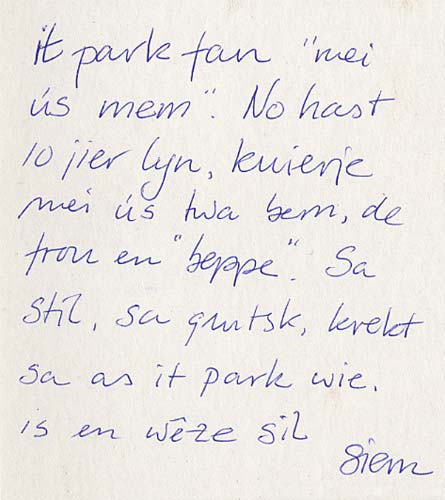 it park fan "mei
ús mem". No hast
10 jier lyn, kuierje
mei ús twa bern, de
frou en "beppe". Sa
stil, sa grutsk, krekt
sa as it park wie.
is en wêze sil
Siem